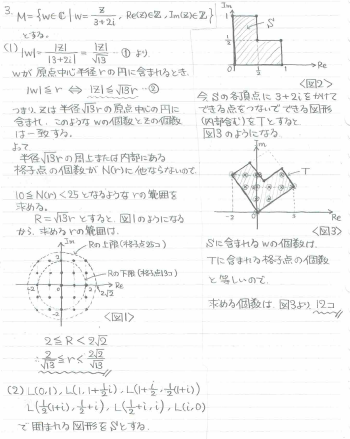 3. M={w∈ℂ | w=z/(3+2i), Re(z)∈Z, Im(z)∈Z}
とする。
(1) |w|=|z|/|3+2i|=|z|/√13 …① より
wが原点中心半径rの円に含まれるとき、
|w|≦r ⇔ |z|≦√13 r …②
つまり、zは半径√13rの原点中心の円に
含まれ、このようなwの個数とzの個数
は一致する。
よって
半径√13rの周上または内部にある
格子点の個数がN(r)と他ならないので、
10≦N(r)<25となるようなrの範囲を
求める。
R=√13rとすると、図1のようになる
から、求めるrの範囲は、
Im
Rの上限(格子点25コ)
Rの下限(格子点13コ)
Re
-2
0
2
2√2
<図1>
2≦R<2√2
∴ 2/√13≦r<2√2/√13
(2) L(0,1), L(1,1+½i), L(1+i/2, ½(1+i))
L(½(1+i), ½+i), L(½+i, i), L(i,0)
で囲まれる図形をSとする。
Im
1
S
½
0
½
1
Re
<図2>
今、Sの各頂点に3+2iをかけて
できる点をつないでできる図形
(内部含む)をTとすると
図3のようになる
Im
T
-2
0
3
Re
<図3>
Sに含まれるwの個数は、
Tに含まれる格子点の個数
と等しいので、
求める個数は、図3より 12コ